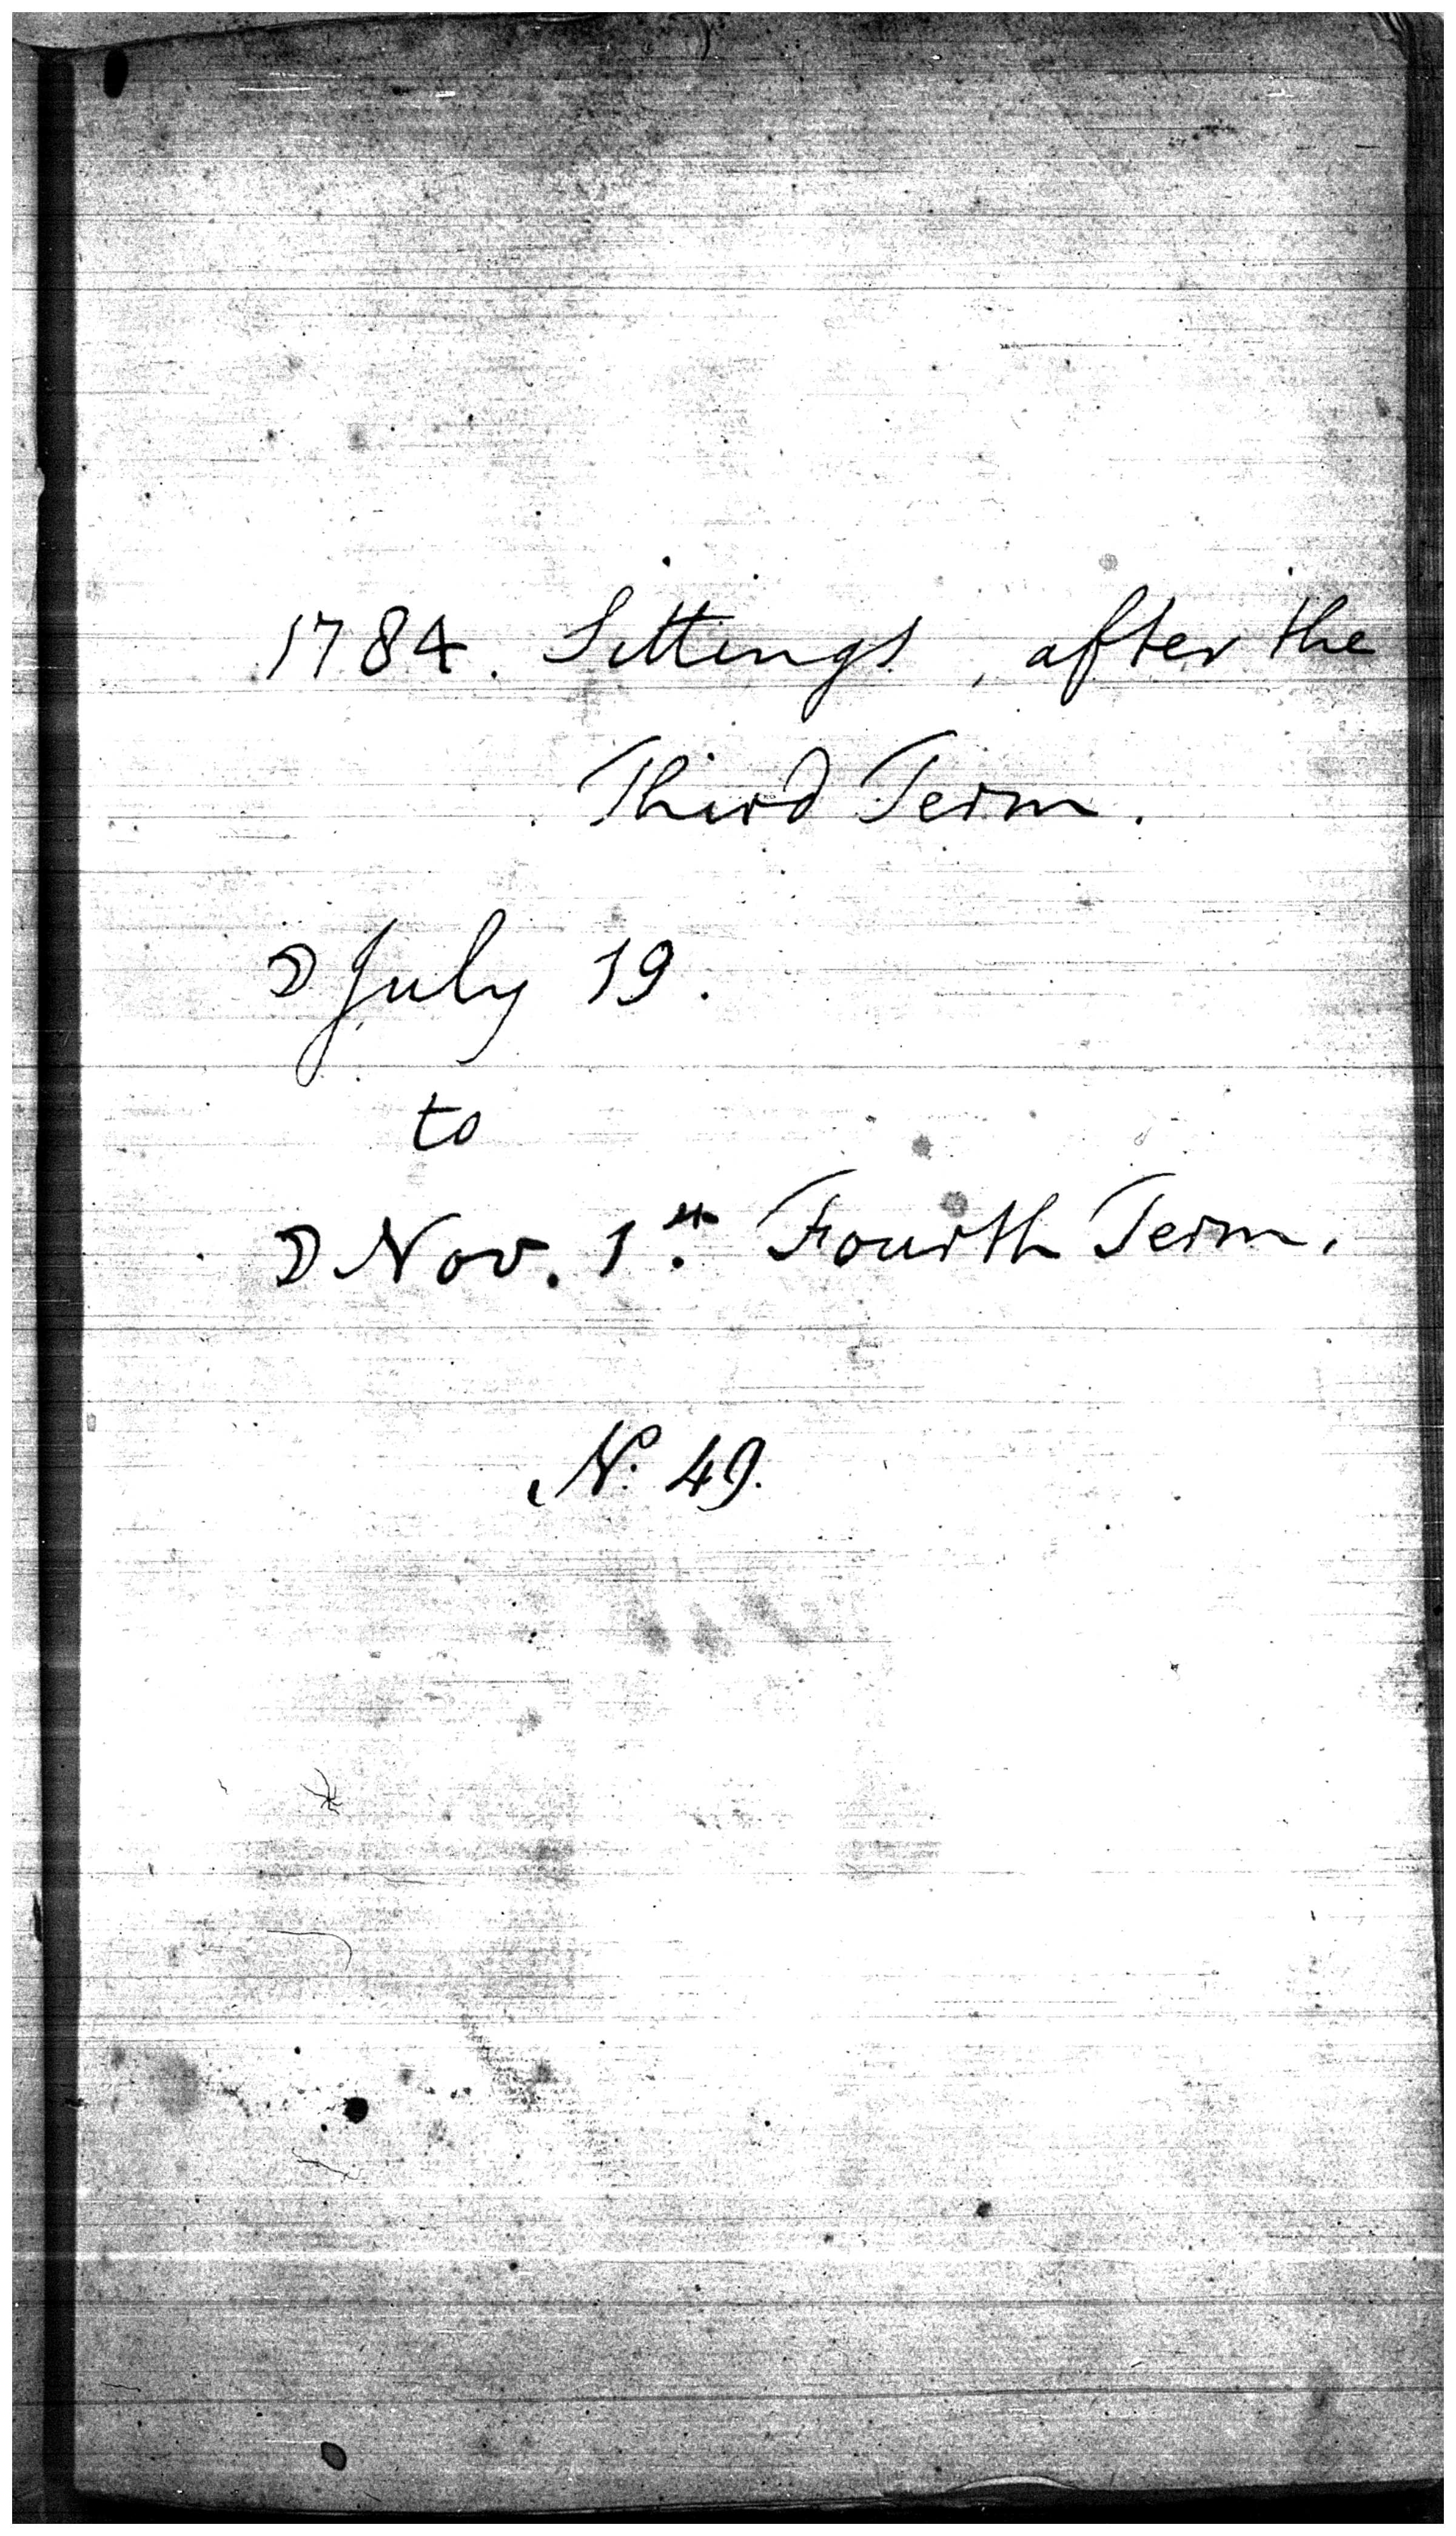 1784. Sittings, after the
Third Term.
☽ July 19.
to
☽ Nov. 1st. Fourth Term.
No. 49.